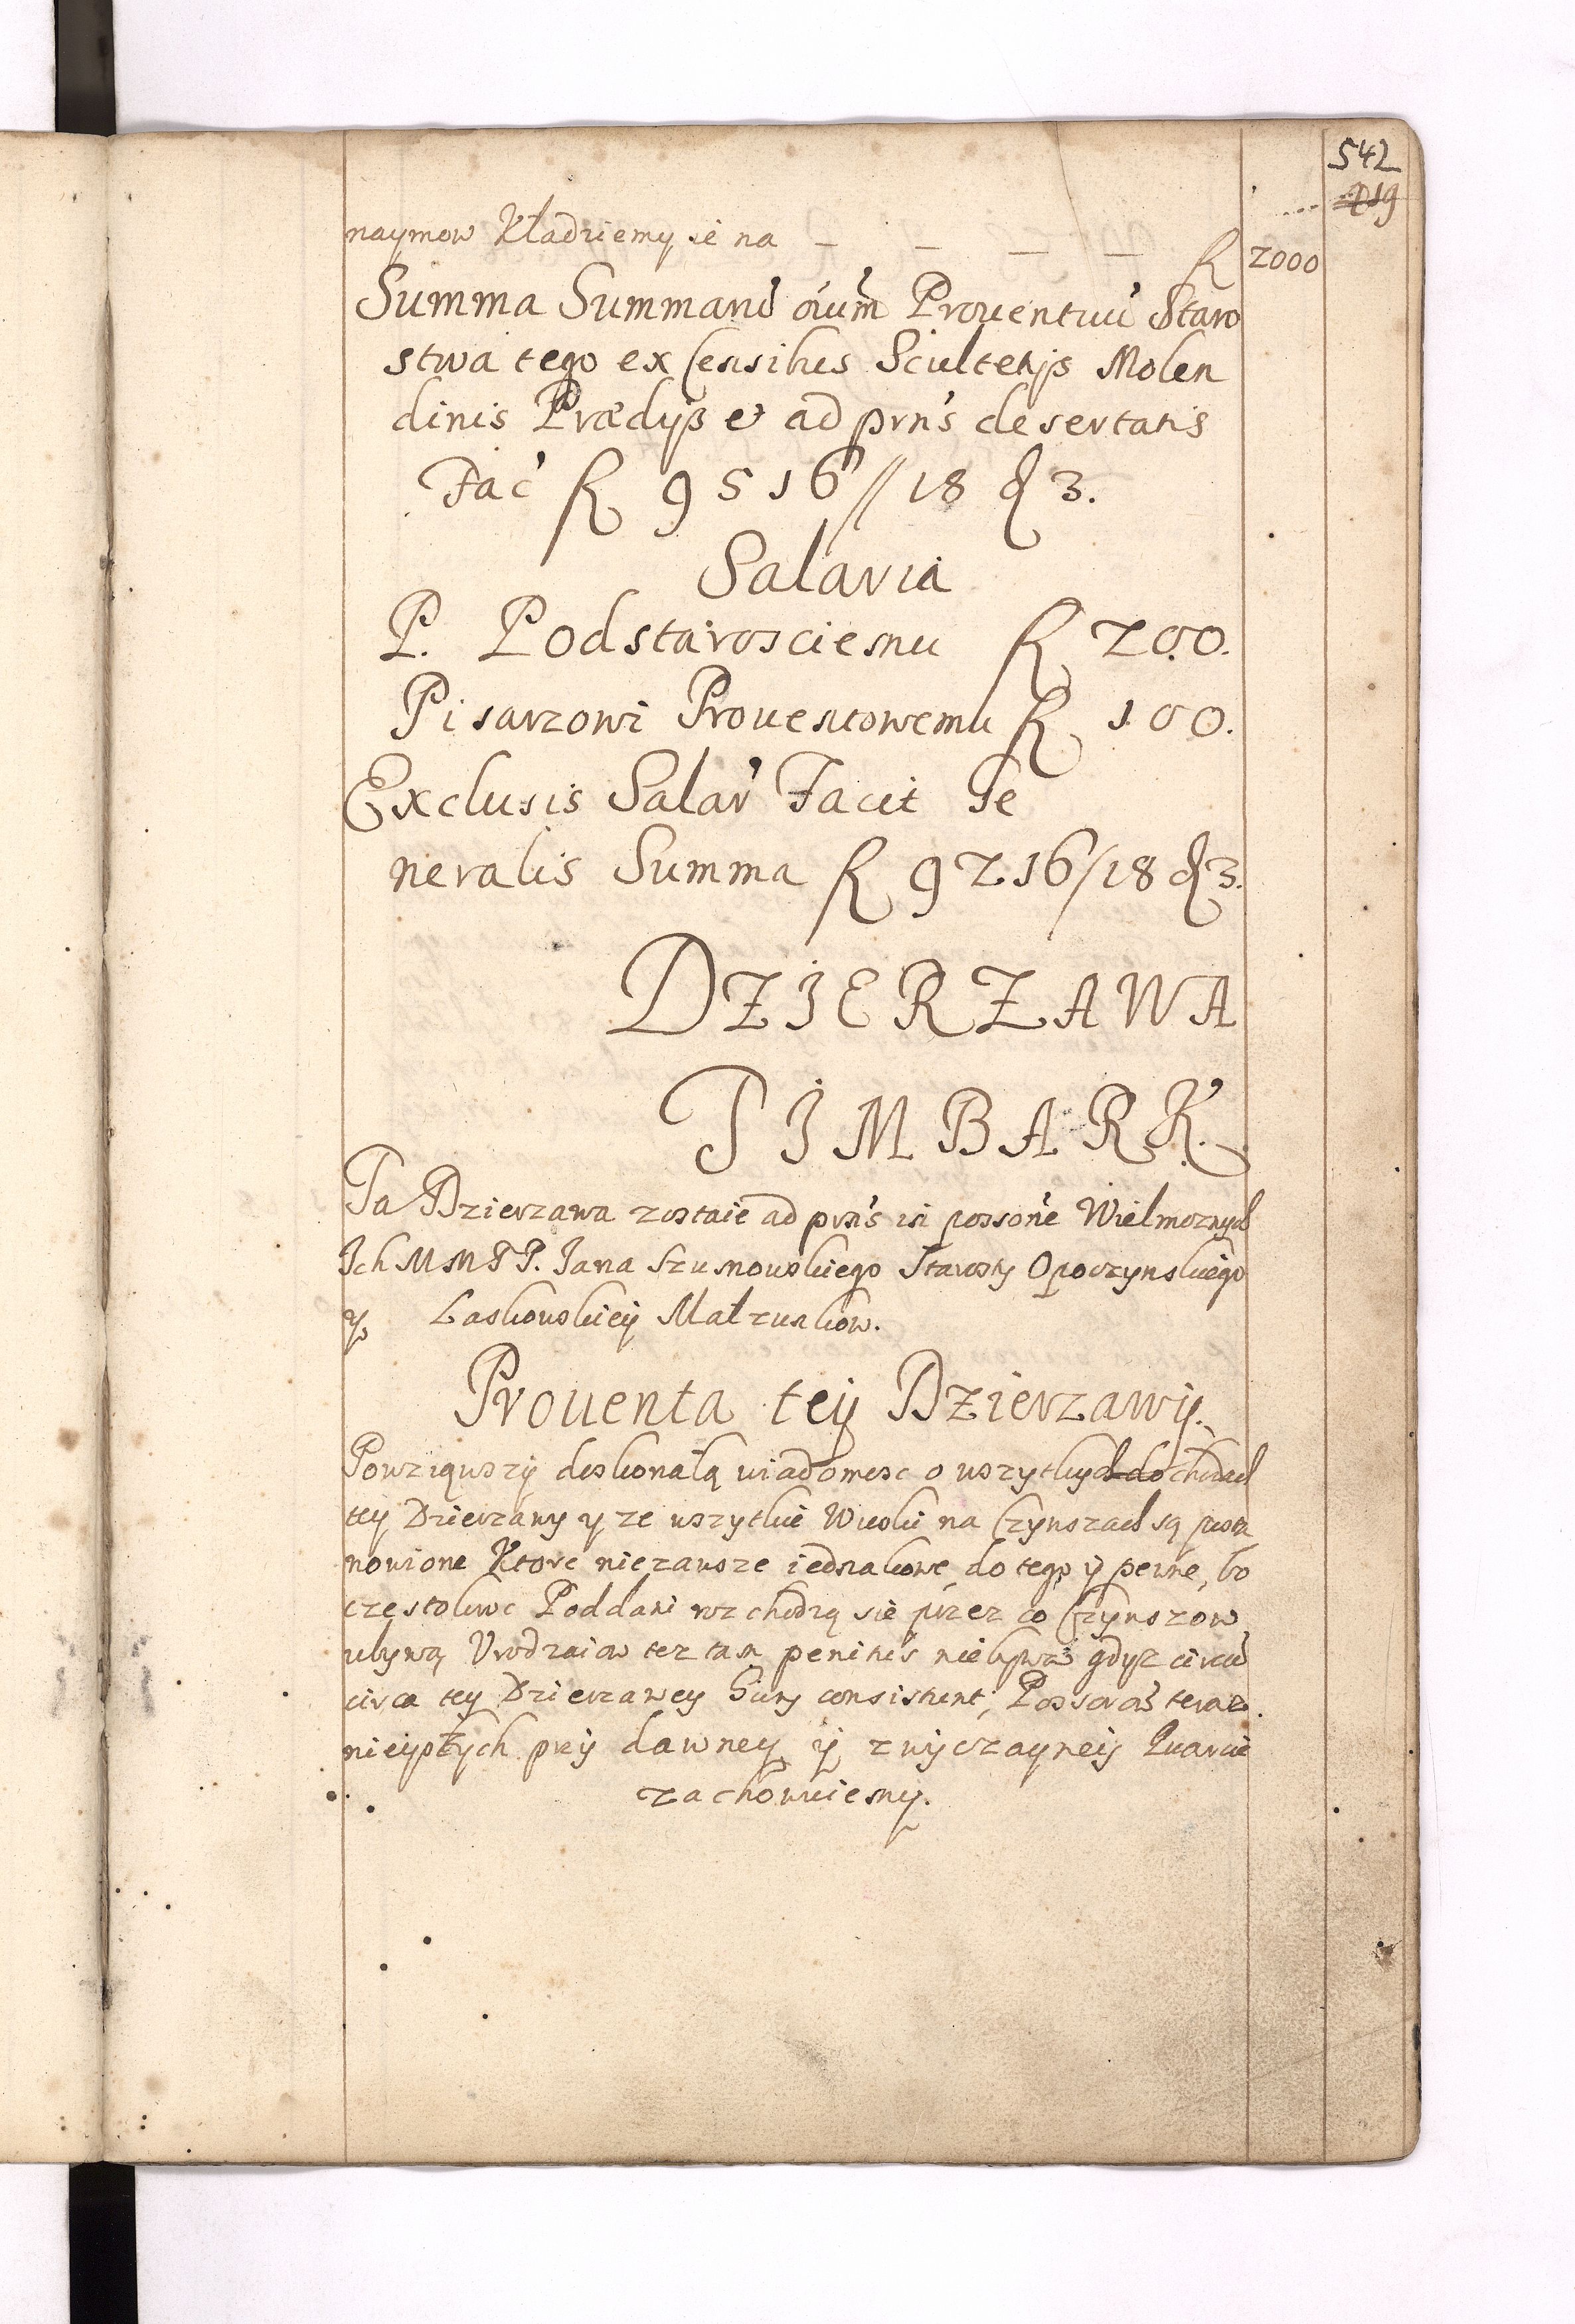 542
219
naymow Kładziemy sie na — — — — fl 2000
Summa Summarū oiūm Prouentuū Staro
stwa tego ex Censibus Scultetijs Molen
dinis Prædijs et ad prn's desertatis
Fac' fl 9516//18 d 3.
Salaria
P. Podstarosciemu fl 200.
Pisarzowi Prouentowemu fl 100.
Exclusis Salar' Facit Ge
neralis Summa fl 9216/18 d 3.
DZIERZAWA
TIMBARK.
Ta Dzierzawa zostaie ad prn's in possone Wielmoznych
Ich MM PP. Jana Szumowskiego Starosty Opoczynskiego
y Laskowskiey Małzunkow.
Prouenta tey Dzierzawy.
Powziąwszy doskonałą wiadomosc o wszytkych dochodach
tey Dzierzawy y ze wszytkie Wioski na Czynszach są posta
nowione Ktore niezawsze iednakowe do tego y pewne, bo
częstokroc Poddani rozchodzą się przez co Czynszow
ubywa, Vrodzaiow tez tam penitus niebywa gdysz circū
circa tey Dzierzawey Gury consistunt, Possorow teraz
nieyszych przy dawney y zwyczayney Kwarcie
zachowuiemy.